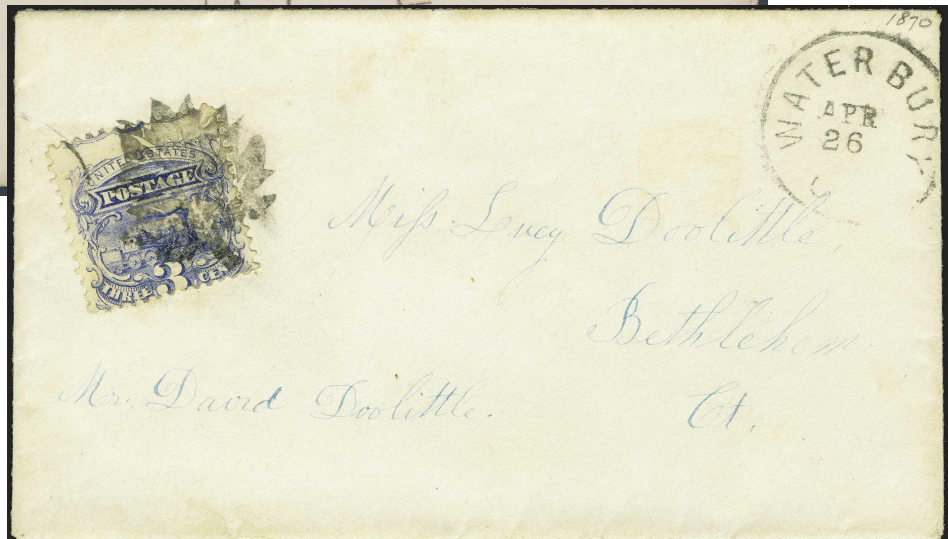 1870
WATERBURY
APR
26
UNITED STATES
POSTAGE
THREE 3 CEN
Miss Lucy Doolittle,
Bethlehem
Mr. David Doolittle.
Ct.